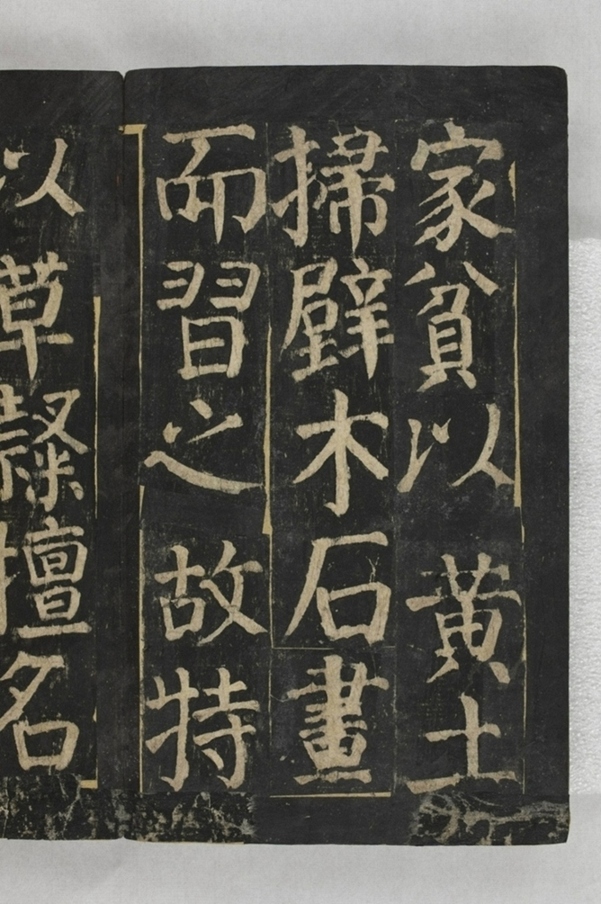 家貧以黃土
掃壁木石畫
而習之故特
以草隸擅名